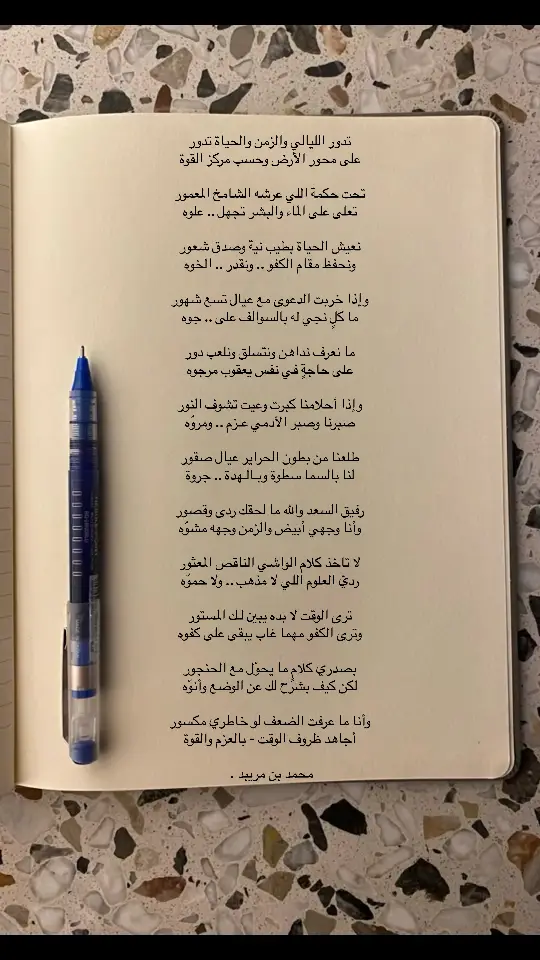 تدور الليالي والزمن والحياة تدور
على محور الأرض وحسب مركز القوة
تحت حكمة اللي عرشه الشامخ المعمور
تعلى على الماء والبشر تجهل .. علوه
نعيش الحياة بطيب نية وصدق شعور
ونحفظ مقام الكفو .. ونقدر .. الخوه
وإذا خربت الدعوى مع عيال تسع شهور
ما كلٍ نجي له بالسوالف على .. جوه
ما نعرف نداهن ونتسلق ونلعب دور
على حاجةٍ في نفس يعقوب مرجوه
وإذا أحلامنا كبرت وعيت تشوف النور
صبرنا وصبر الأدمي عزم .. ومروّه
طلعنا من بطون الحراير عيال صقور
لنا بالسما سطوة وبـالـهدة .. جروة
رفيق السعد والله ما لحقك ردى وقصور
وأنا وجهي أبيض والزمن وجهه مشوّه
لا تاخذ كلام الواشي الناقص المعثور
رديّ العلوم اللي لا مذهب .. ولا حموّه
ترى الوقت لا بده يبين لك المستور
وترى الكفو مهما غاب يبقى على كفوه
بصدري كلامٍ ما يحوّل مع الحنجور
لكن كيف بشرّح لك عن الوضع وأنوّه
وأنا ما عرفت الضعف لو خاطري مكسور
أجاهد ظروف الوقت - بالعزم والقوة
محمد بن مريبد .